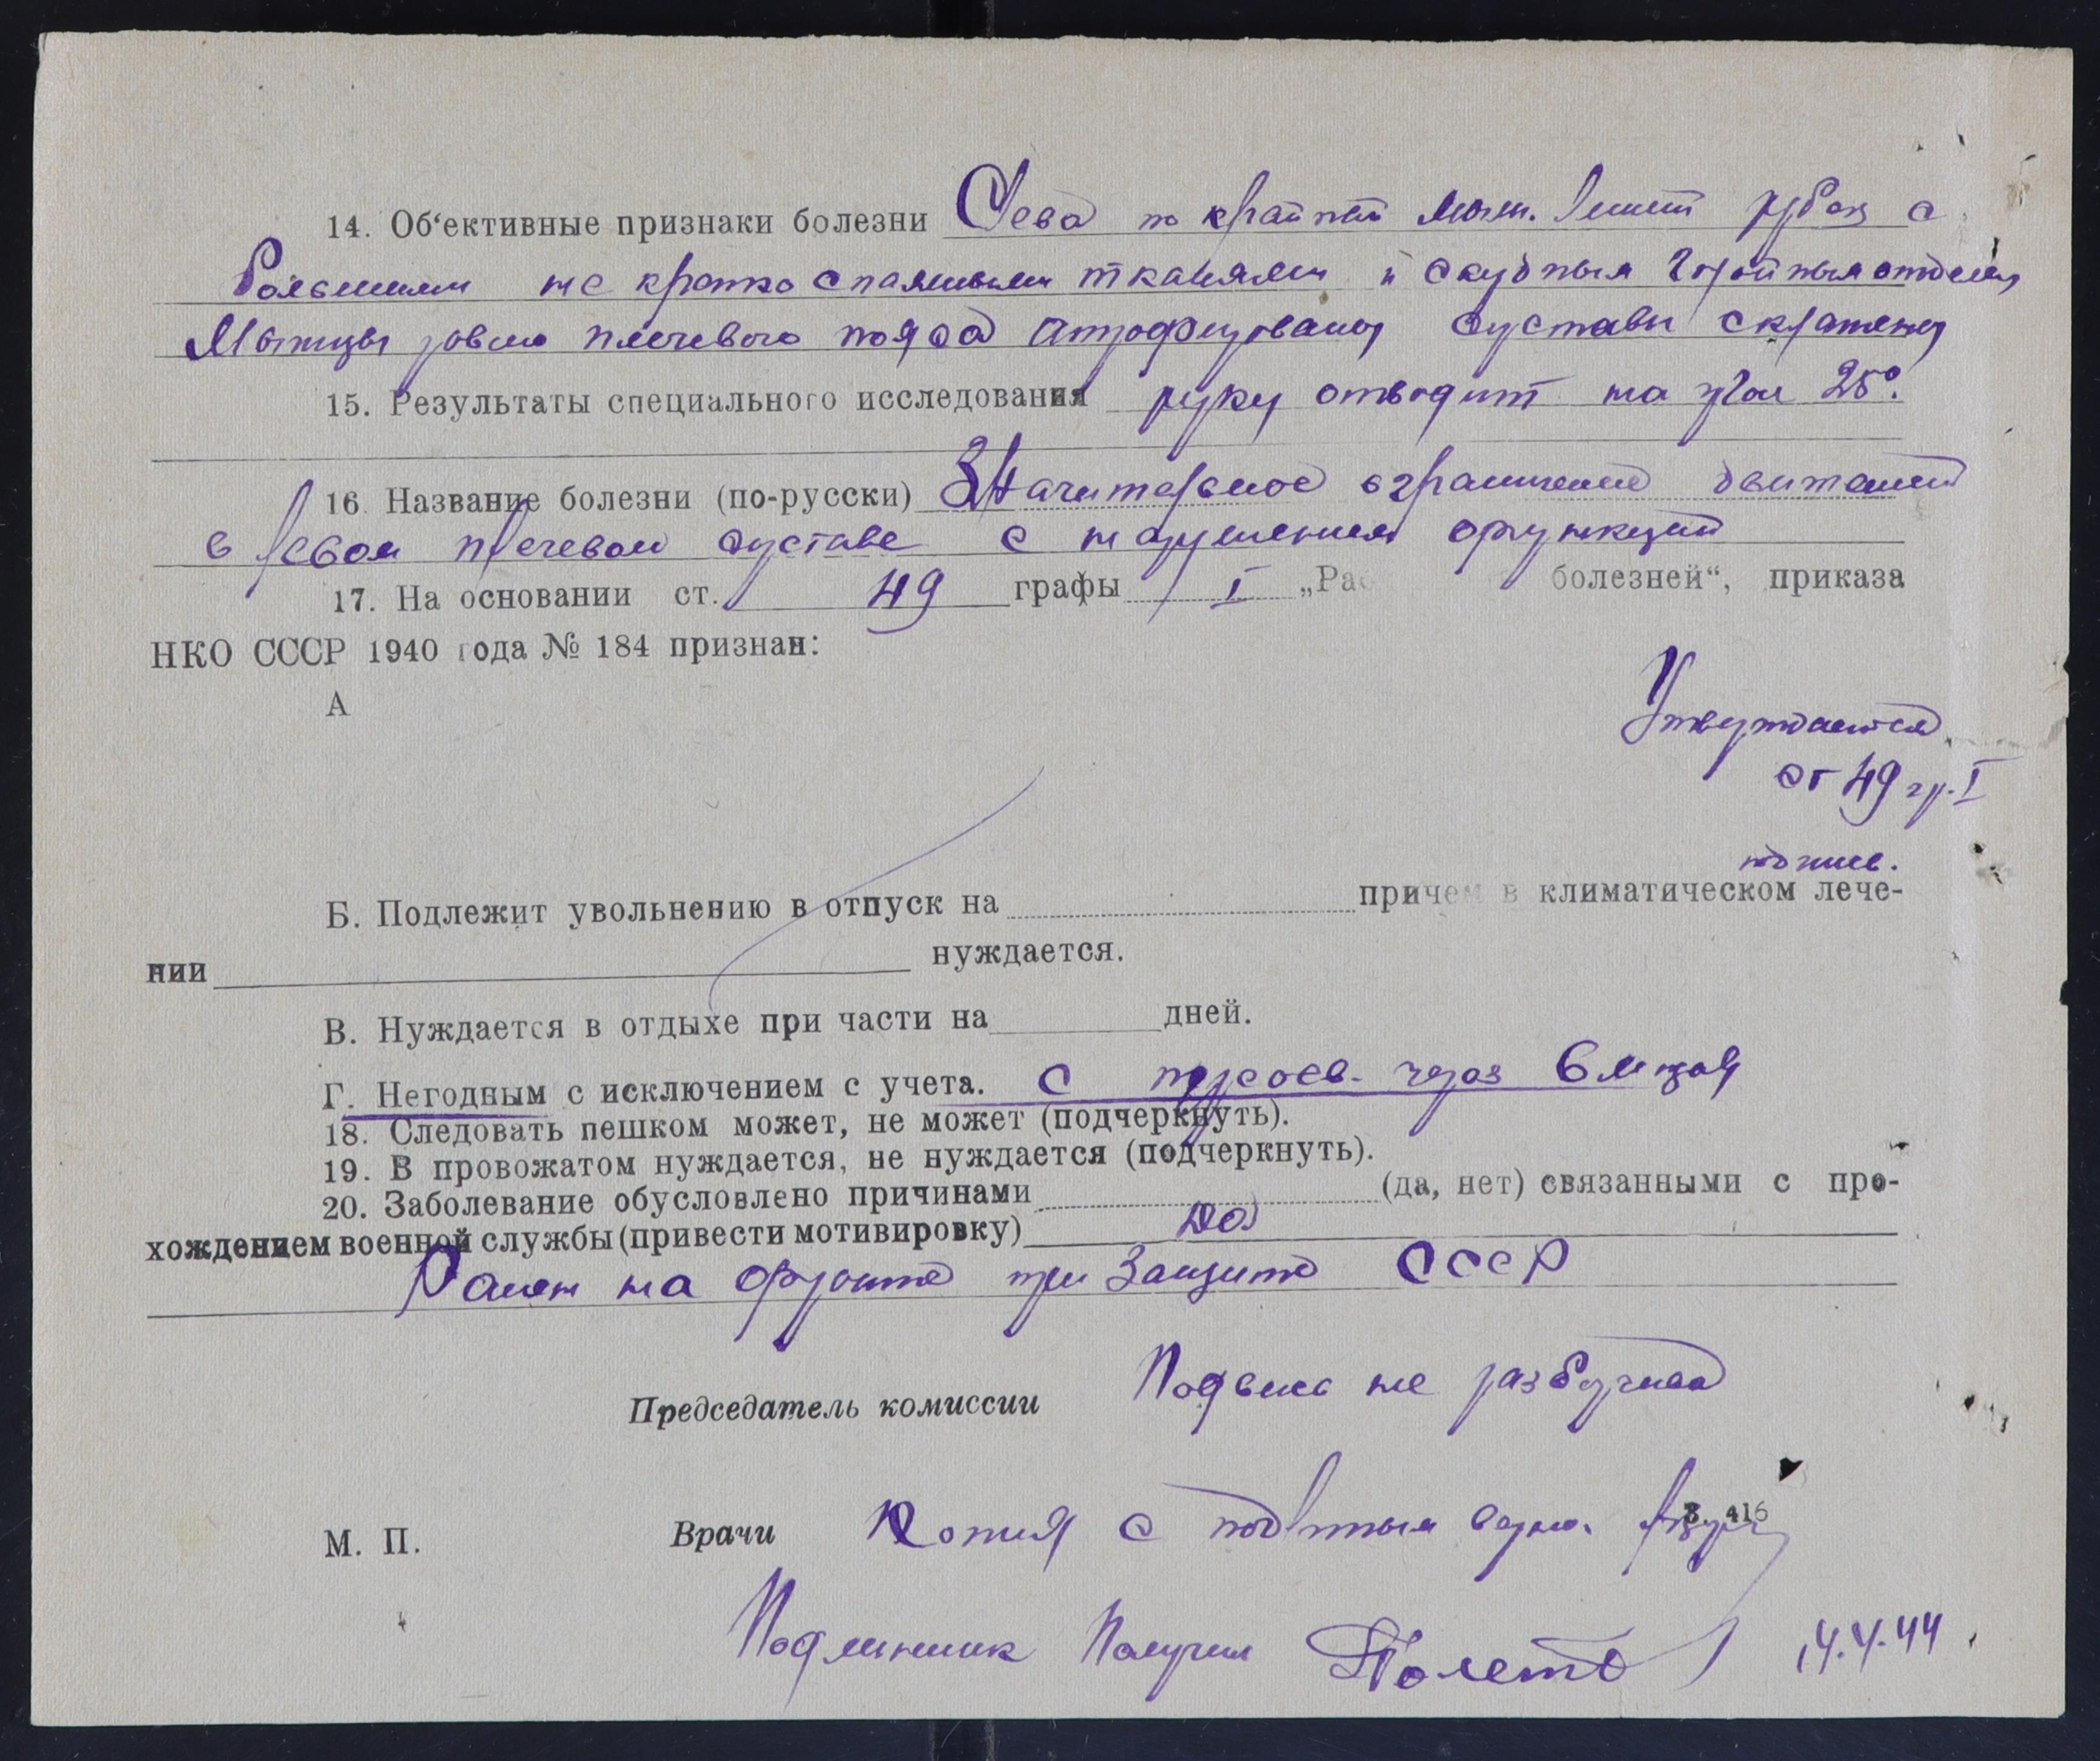 14. Об‘ективные признаки болезни Слева по крайней мыш. имеет рубец с
большими не крепко спаянными тканями и скудным гнойным отделяем
Мышцы левого плечевого пояса атрофированы суставы сохранены
15. Результаты специального исследования руку отводит на угол 25°.
16. Название болезни (по-русски) Значительное ограничение движений
в левом плечевом суставе с нарушением функций
17. На основании ст. 49 графы I „Рас болезней“, приказа
НКО СССР 1940 года № 184 признан:
А
Утверждается
ст 49 гр. I
подпись.
Б. Подлежит увольнению в отпуск на причем в климатическом лече-
нии нуждается.
В. Нуждается в отдыхе при части на дней.
Г. Негодным с исключением с учета. с переосв. через 6 м-цев
18. Следовать пешком может, не может (подчеркнуть).
19. В провожатом нуждается, не нуждается (подчеркнуть).
20. Заболевание обусловлено причинами (да, нет) связанными с про-
хождением военной службы (привести мотивировку) да
Ранен на фронте при защите СССР
Председатель комиссии Подпись не разборчива
З. 416
М. П. Врачи Копия с подлинным верна.
Подлинник Получил 14.4.44